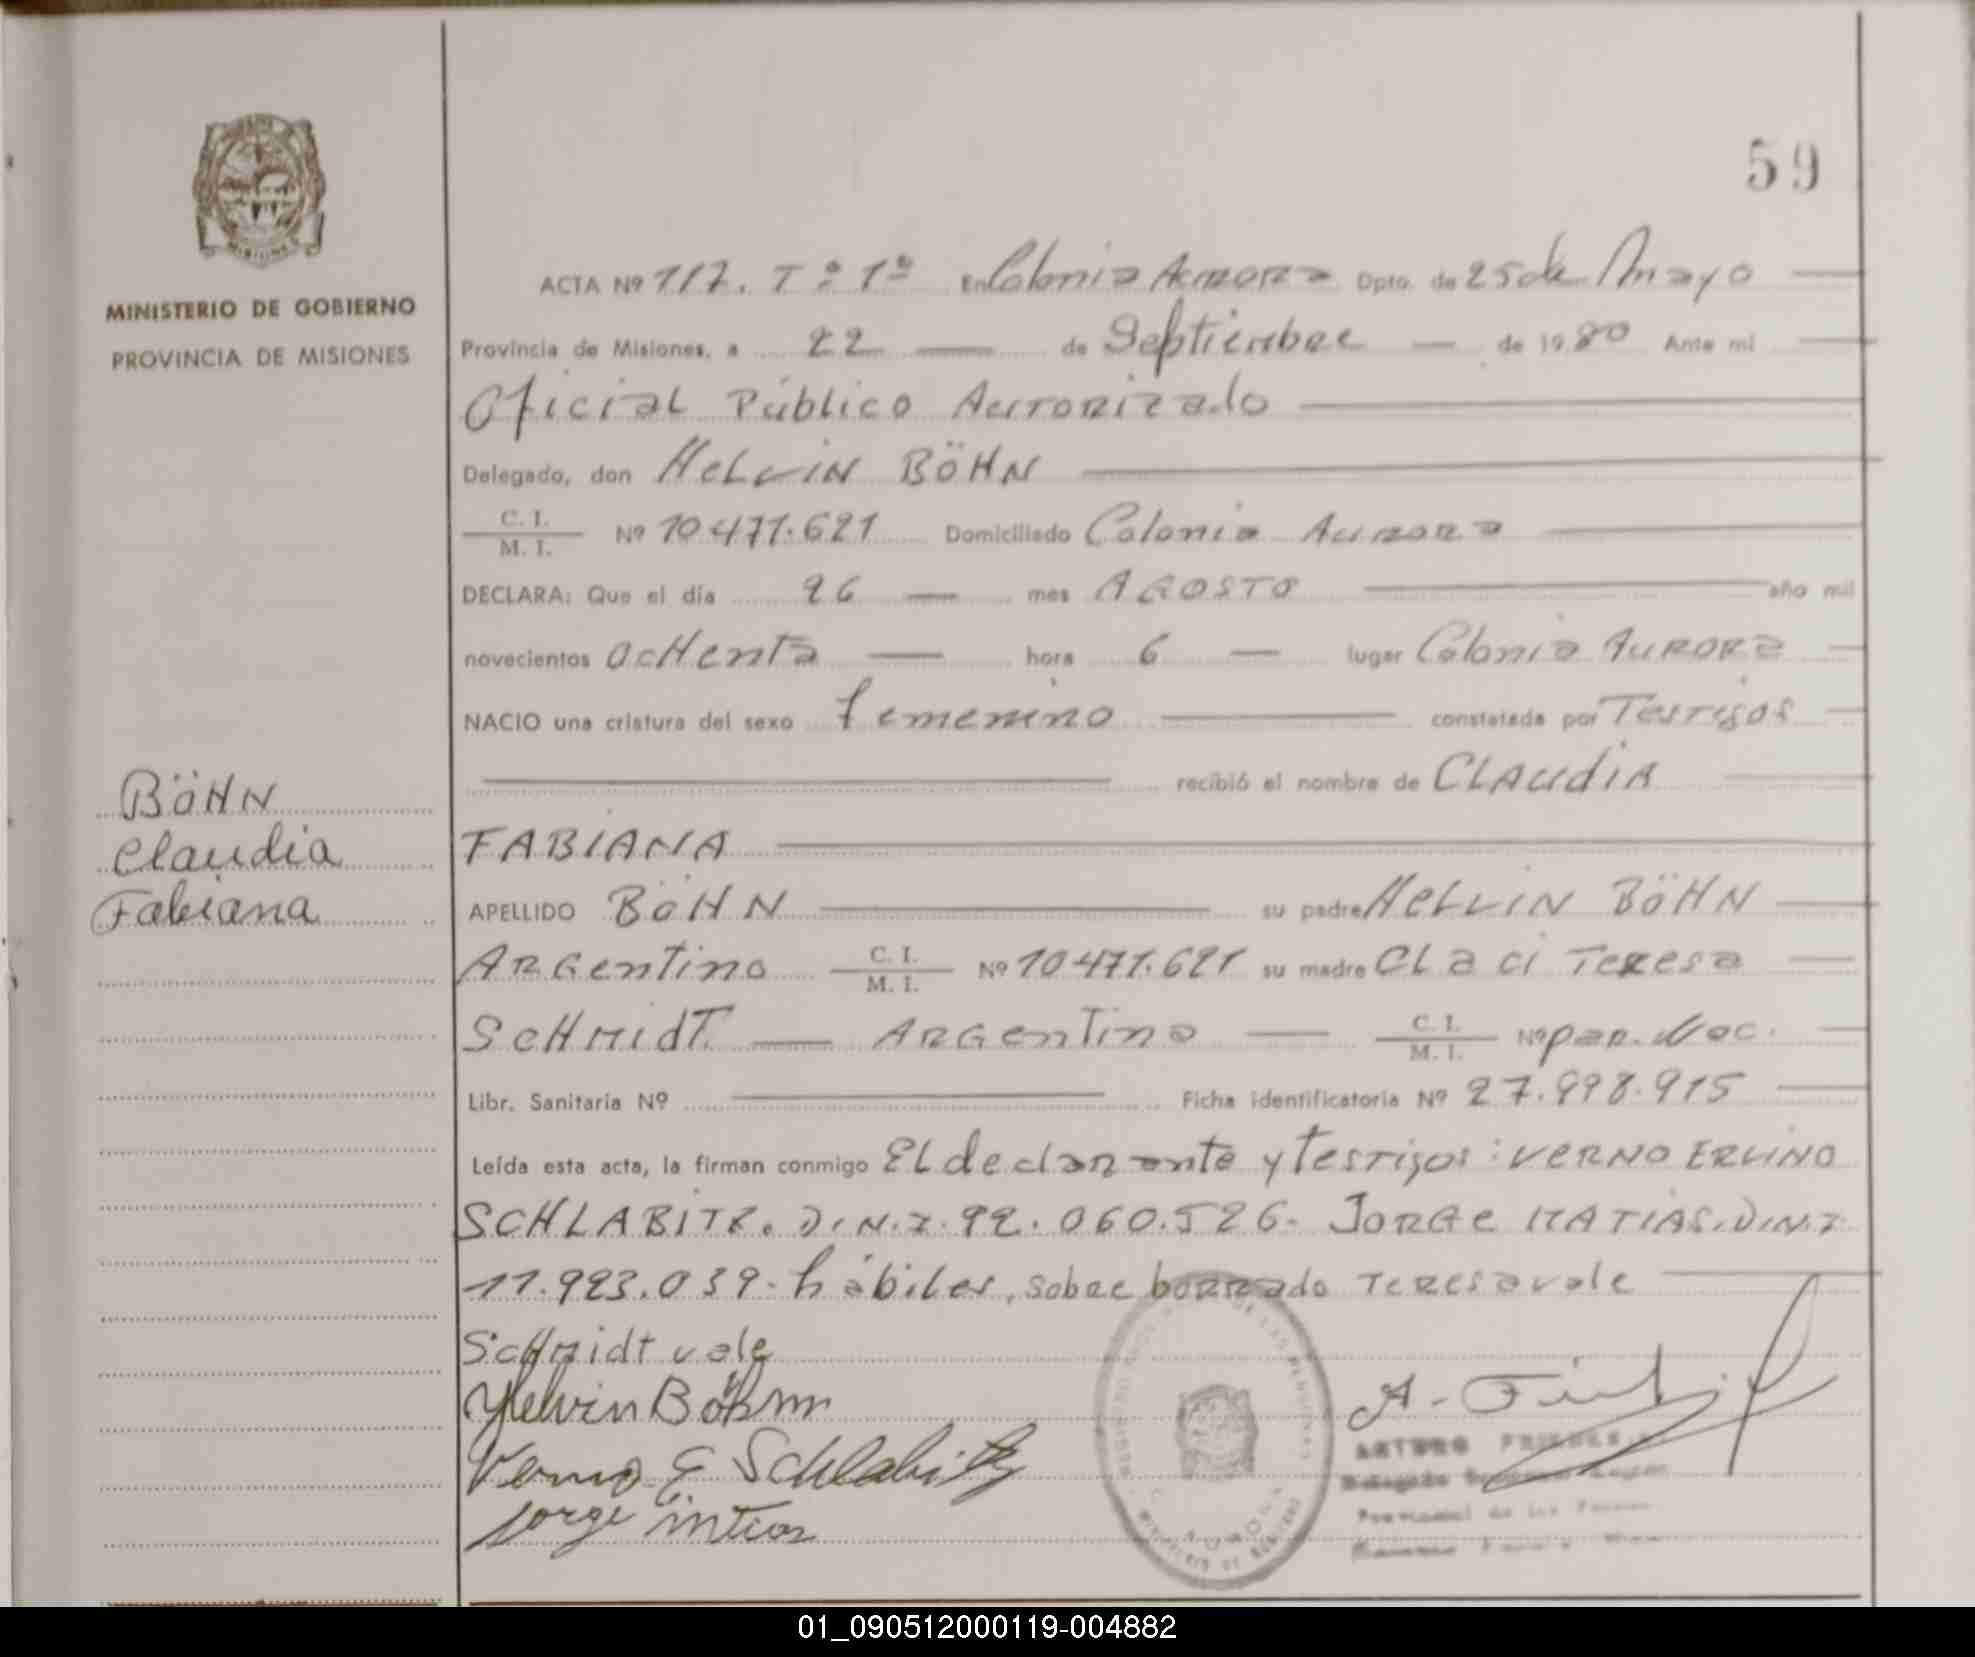 59
MINISTERIO DE GOBIERNO
PROVINCIA DE MISIONES
ACTA Nº 117. Tº 1º En Colonia Aurora Dpto. de 25 de Mayo
Provincia de Misiones, a 22 de Septiembre de 1980 Ante mi
Oficial Público Autorizado
Delegado, don HELVIN BÖHN
C. I.
M. I. Nº 10471.621 Domiciliado Colonia Aurora
DECLARA: Que el día 26 mes AGOSTO año mil
novecientos ocHenta hora 6 lugar Colonia AURORA
NACIO una criatura del sexo femenino constatada por Testigos
recibió el nombre de CLAUdiA
FABIANA
APELLIDO BöHN su padre HELVIN BÖHN
ARGentino C. I.
M. I. Nº 10471.621 su madre CLaci Teresa
SCHMIDT ARGentina C. I.
M. I. Nº
Libr. Sanitaria Nº Ficha identificatoria Nº 27.998.915
Leída esta acta, la firman conmigo El declarante y Testigos: VERNO ERVINO
SCHLABITZ. D.N.I. 92.060.526. JORGE MATIAS. D.N.I
11.923.039. hábiles, sobre borrado TERESA vale
Schmidt vale
BöHN
Claudia
Fabiana
Helvin Böhn
Verno E Schlabitz
Jorge
A.
ARTURO
01_090512000119-004882